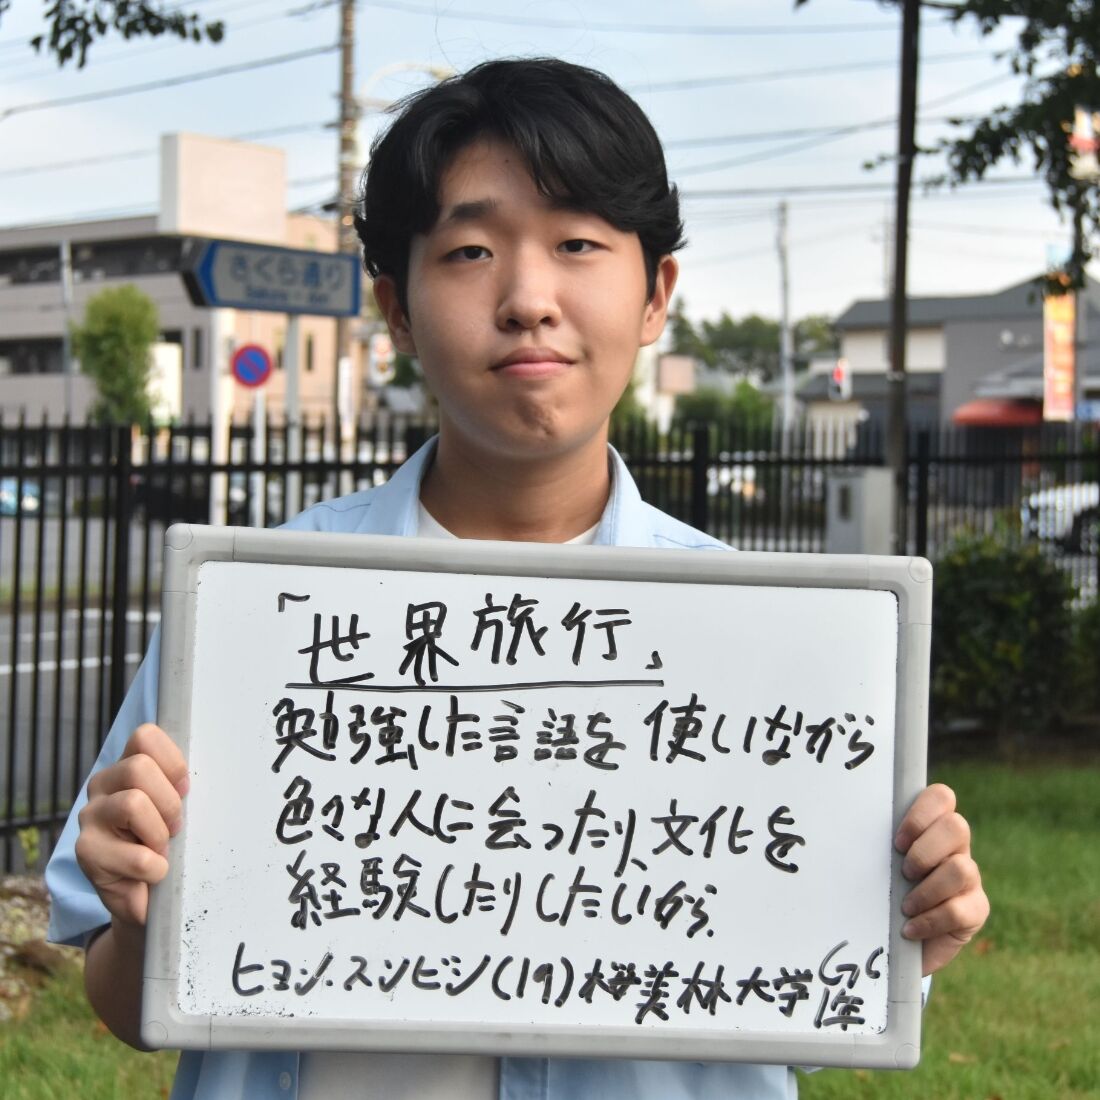 さくら通り
Sakura-dori
「世界旅行」
勉強した言語を使いながら
色々な人に会ったり、文化を
経験したりしたいから。
ヒョン.スンビン(19)桜美林大学GC
1年